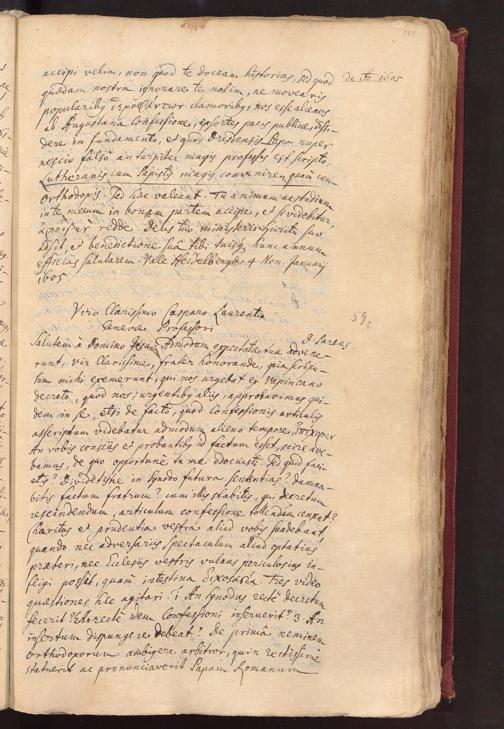 101
accipi velim, non quod te doceam historias, sed quod
de A̅o 1605
quædam nostra ignorare te nolim, ne movearis
popularibus clamoribus, nos esse alienos
ab Augustana Confessione, exsortes pacis publicæ, dissi-
dere in fundamento, et quod Dresdensis nuper
nescio falso an turpiter magis professus est scripto
Lutheranis cum Papistis magis convenire, quam cum
Orthodoxis. Sed hæc valeant. Tu animum ac studium
in te meum in bonam partem accipe, et si videbitur,
redde. Deus tuo ministerio spiritu suo
adsit, et benedictione sua tibi tuisque hunc annum
efficiat salutarem. Vale Heidelbergæ 4 Non. Januarij
1605.
Viro Clarissimo Casparo Laurentio
Genevæ Professori
59
D. Pareus
Salutem a Domino Jesu: Admodum expectatæ tuæ advene-
runt, vir Clarissime, frater honorande, quia scrupu-
lum mihi exemerunt, qui nos urgebat ex Vapincano
decreto, quod nos, urgentibus aliis, approbavimus qui-
dem in se, etsi de facto, quod Confessionis articulis
adscriptum videbatur admodum alieno tempore,
An vobis consciis et probantibus id factum esset, scire ave-
bamus, de quo opportune tu me edocuisti. Sed quid faci-
etis? Dividetisne in synodo futura sententias? damna-
bitis factum fratrum? cum illis stabitis, qui decretum
rescindendum, articulum confessione tollendum censent?
Charitas et prudentia vestra aliud vobis suadebunt,
quando nec adversariis spectaculum aliud optatius
præberi, nec Ecclesiis vestris vulnus periculosius in-
fligi possit, quam intestina διχοστασία. Tres video
quæstiones hic agitari: 1 An Synodus recte decretum
fecerit? 2 An recte idem Confessioni inseruerit? 3. An
insertum dispungere debeat? De prima neminem
Orthodoxorum ambigere arbitror, quin rectissime
statuerit ac pronunciaverit Papam Romanum